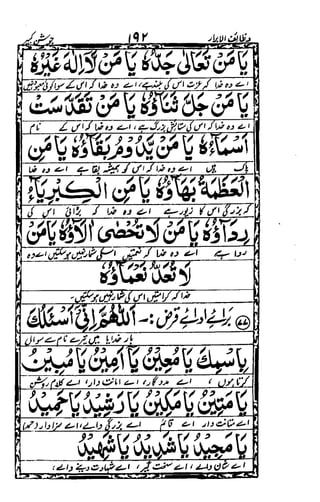 وظائف الابرار ۱۹۲ جوشن کبیر
يَا مَنْ تَعَالٰى جَدُّهٗ يَا مَنْ لَا اِلٰهَ غَيْرُهٗ
اے وہ خدا کہ اس کے سوا کوئی معبود نہیں
يَا مَنْ جَلَّ ثَنَاؤُهٗ يَا مَنْ تَقَدَّسَتْ
اے وہ خدا کہ اس کی ستایش بزرگ ہے، اے وہ خدا کہ اس کے نام
اَسْمَاءُهٗ يَا مَنْ يَدُوْمُ بَقَاؤُهٗ يَا مَنِ
پاک ہیں اے وہ خدا کہ اس کو ہمیشہ بقا ہے اے وہ خدا
الْعَظَمَةُ بَهَاؤُهٗ يَا مَنِ الْكِبْرِيَاءُ
کہ بزرگی اس کا زیور ہے اے وہ خدا کہ بڑائی اس کی
رِدَاؤُهٗ يَا مَنْ لَا تُحْصٰى اٰلَاؤُهٗ يَا مَنْ
ردا ہے اے وہ خدا کہ نعمتیں اسکی شمار نہیں ہو سکتیں اے وہ
لَا تُعَدُّ نَعْمَاؤُهٗ
خدا کہ اس کی شمار نہیں ہو سکتیں۔
(۷۷) برائے ادائے قرض :- اَللّٰهُمَّ اِنِّيْ اَسْئَلُكَ
بار خدایا میں تیرے نام سے سوال
بِاسْمِكَ يَا مُعِيْنُ يَا اَمِيْنُ يَا مُبِيْنُ
کرتا ہوں، اے مددگار، اے امانت دار، اے کلام روشن
يَا مَتِيْنُ يَا مَكِيْنُ يَا رَشِيْدُ يَا حَمِيْدُ
اے متانت دار اے قائم اے بزرگی والے، اے سزاوار (حمد)
يَا مَجِيْدُ يَا شَدِيْدُ يَا شَهِيْدُ
اے شان والے، اے سخت گیر، اے شہادت دینے والے،